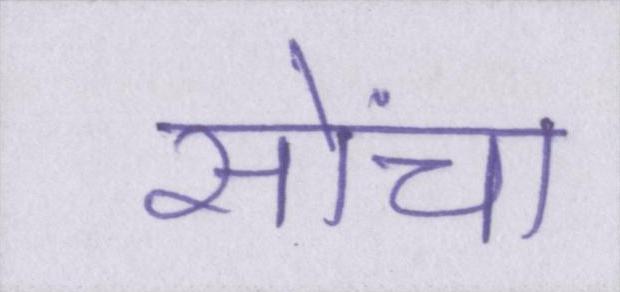 सोंचा